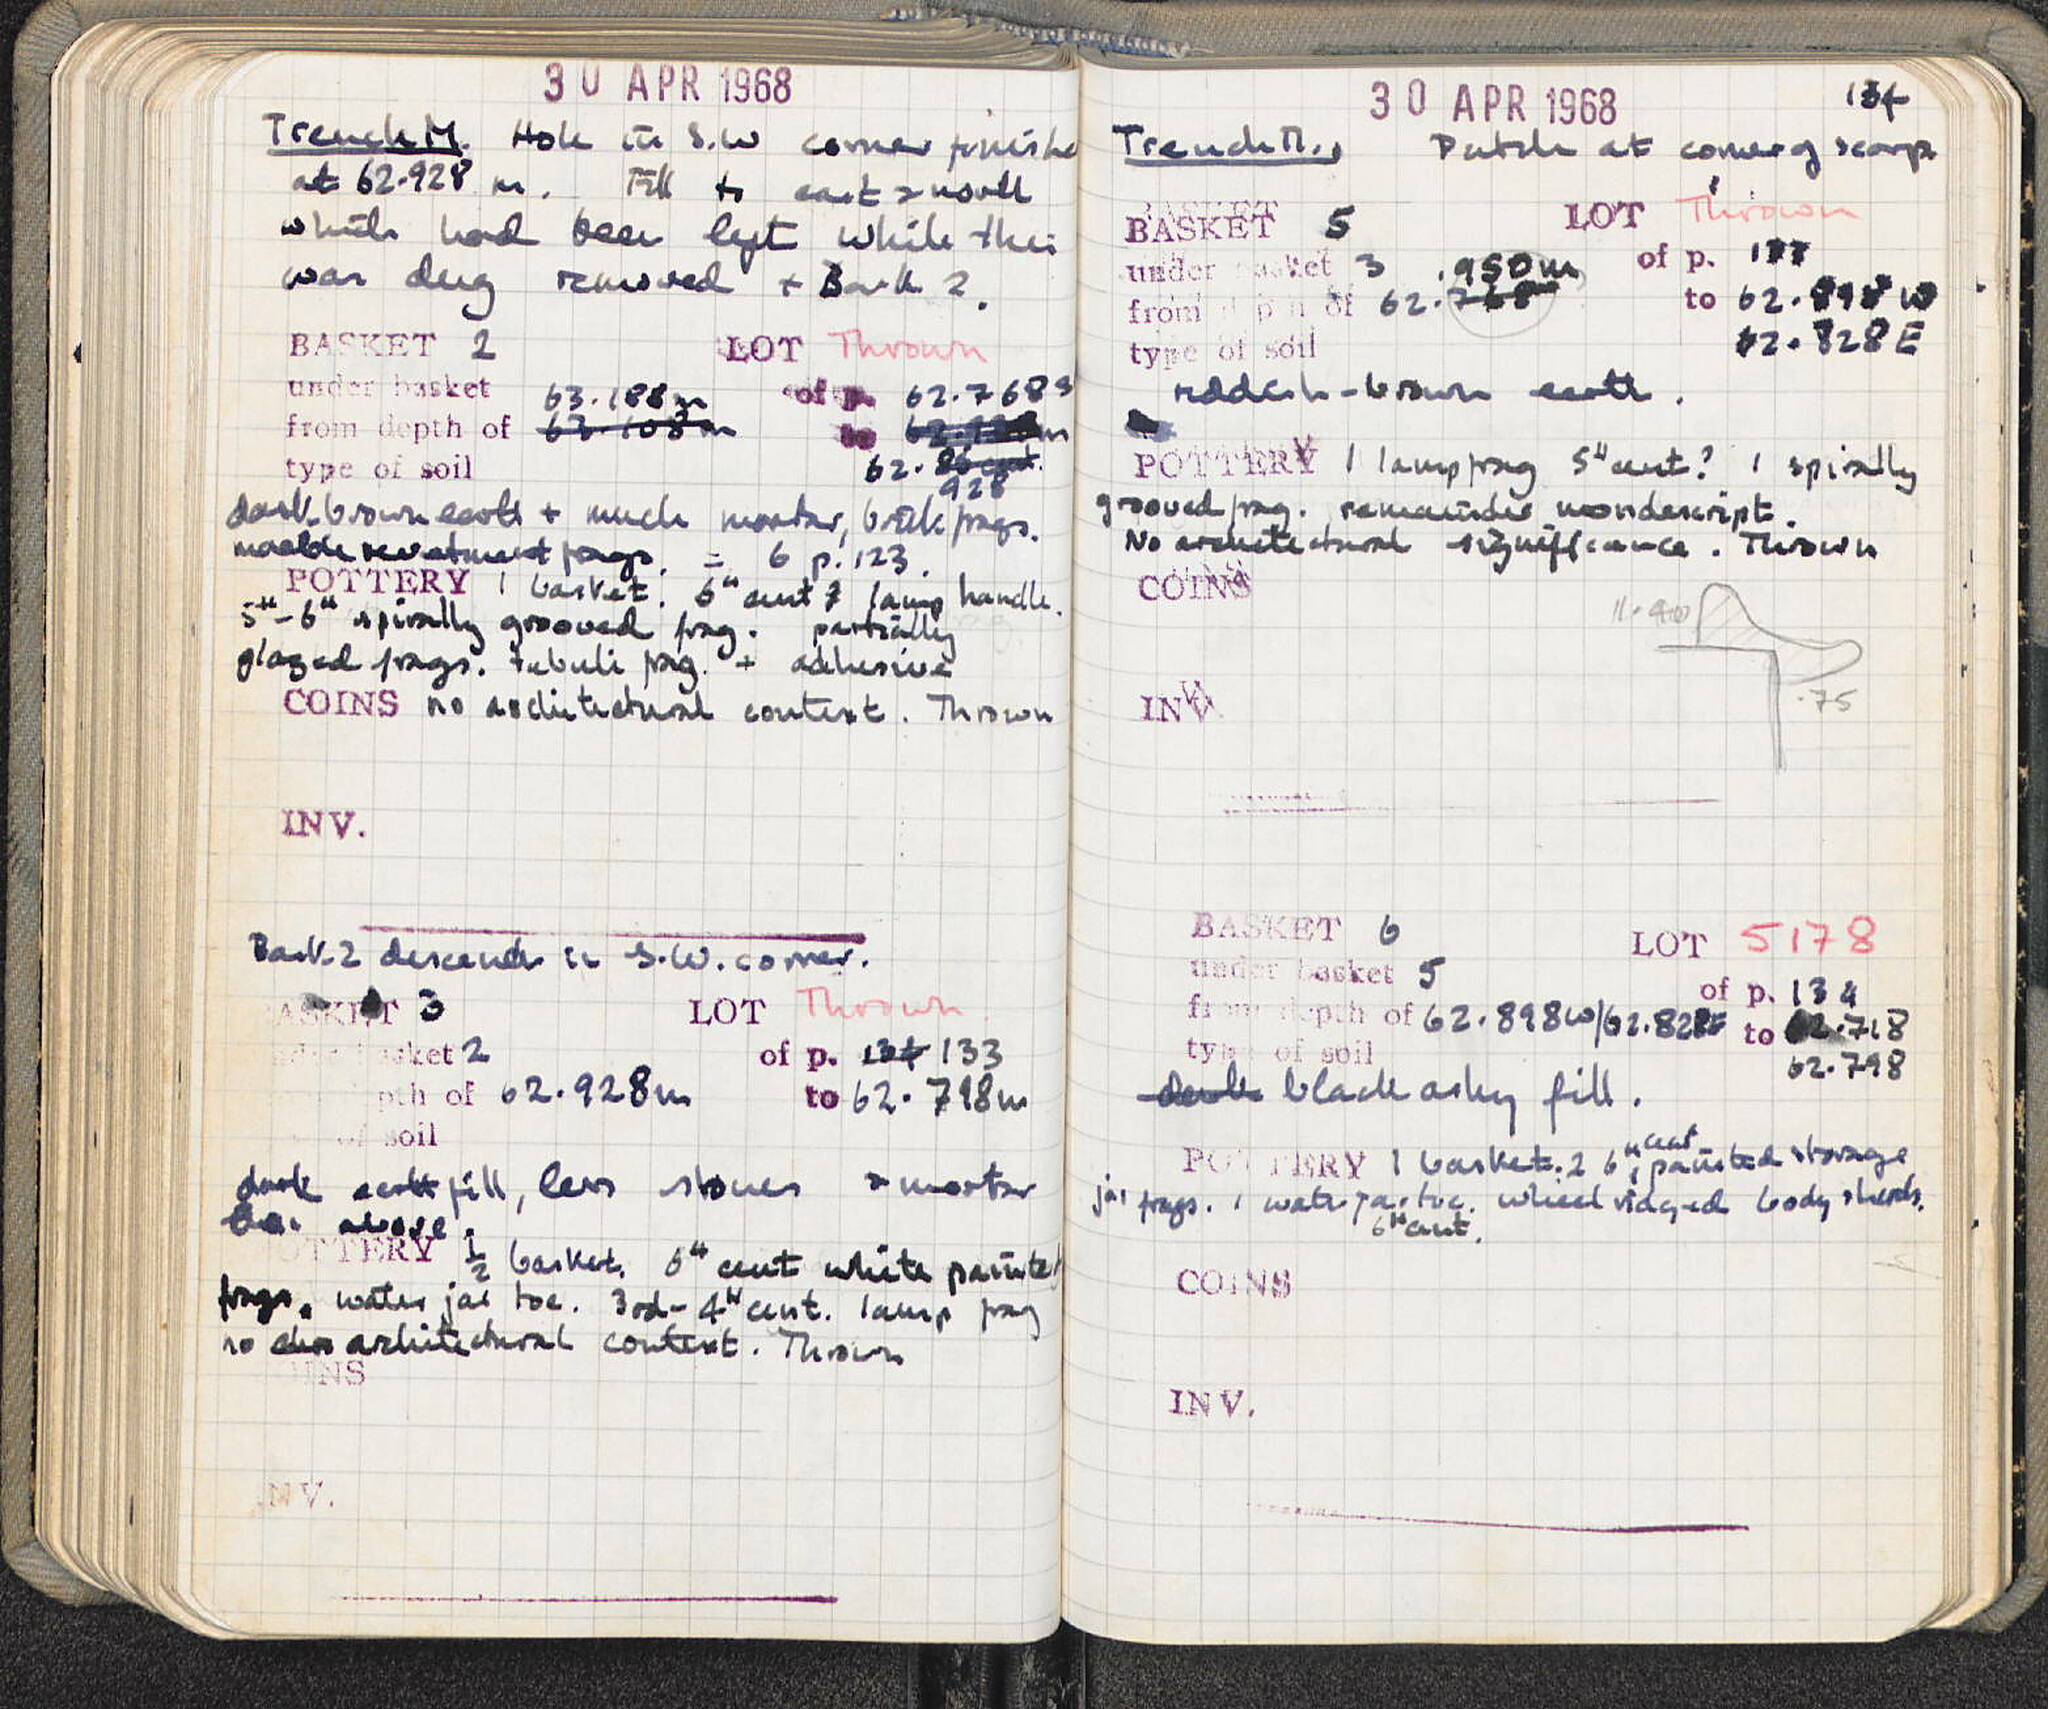 30 APR 1968
Trench M. Hole in S.W corner finishe
at 62.928 m. Fill to east & north
which had been left while this
was dug removed + Bask 2.
BASKET 2 LOT Thrown
under basket 63.188m of p. 62.768 S
from depth of 63.108m to m
type of soil 62.86 cent.
928
dark brown earth + much mortar, brick frags.
marble revetment frags. = 6 p. 123.
POTTERY 1 basket. 6th cent ? lamp handle.
5th-6th spirally grooved frag. partially
glazed frags. tubuli frag. + adhesive
COINS no architectural context. Thrown
INV.
Bask. 2 descends in S.W. corner.
BASKET 3 LOT Thrown.
under basket 2 of p. 134 133
depth of 62.928m to 62.798m
of soil
dark earth fill, less stones & mortar
than above.
POTTERY 1/2 basket. 6th cent white painted
frags. water jar toe. 3rd-4th cent. lamp frag
no architectural context. Thrown
COINS
INV.
30 APR 1968 134
Trench M., Patch at corner of scarp
BASKET 5 LOT Thrown
under basket 3 .950m of p. 133
from depth of 62.768m to 62.898 W
type of soil 62.828 E
reddish-brown earth.
POTTERY 1 lamp frag 5th cent? 1 spirally
grooved frag. remainder nondescript.
No architectural significance. Thrown
COINS
11.40
INV.
.75
BASKET 6 LOT 5178
under basket 5 of p. 134
from depth of 62.898W/62.828E to 62.718
type of soil 62.798
dark black ashy fill.
POTTERY 1 basket. 2 6th cent painted storage
jar frags. 1 water jar toe. wheel ridged body sherds.
6th cent.
COINS
INV.